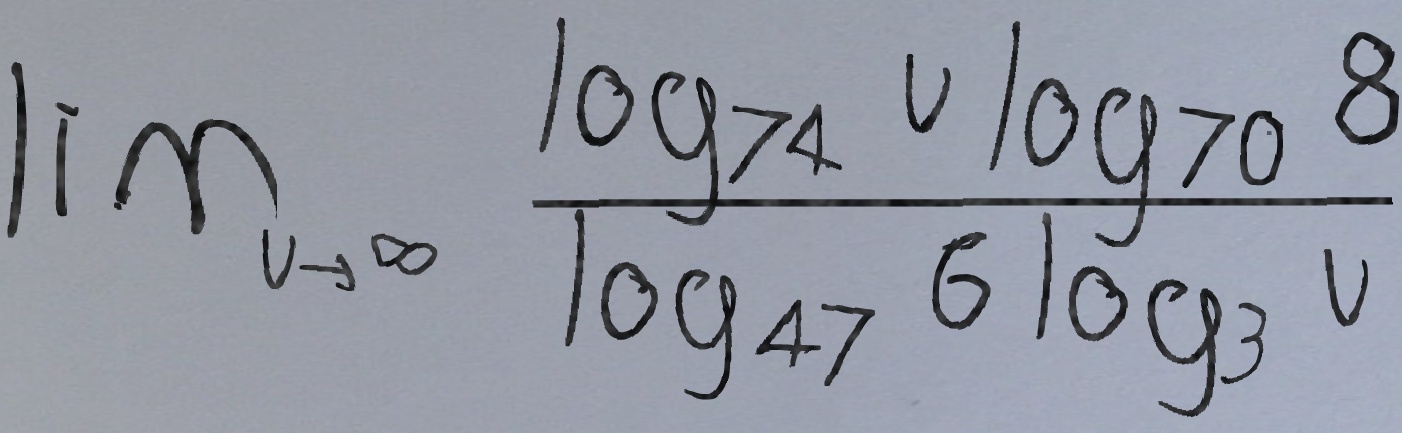 \lim_{v \to \infty} \frac{\log_{74} v \log_{70} 8}{\log_{47} 6 \log_{3} v}